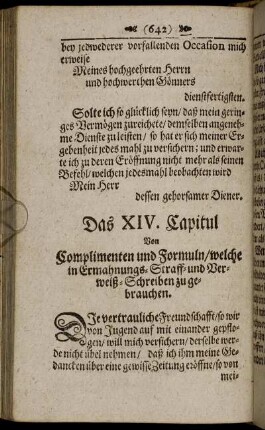 (642)
bey jedwederer vorfallenden Occasion mich
erweise
Meines hochgeehrten Herrn
und hochwerthen Gönners
dienstfertigsten.
Solte ich so glücklich seyn/ daß mein gerin-
ges Vermögen zureichete/ demselben angeneh-
me Dienste zu leisten/ so hat er sich meiner Er-
gebenheit jedes mahl zu versichern; und erwar-
te ich zu deren Eröffnung nicht mehr als seinen
Befehl/ welchen jedesmahl beobachten wird
Mein Herr
dessen gehorsamer Diener.
Das XIV. Capitul
Von
Complimenten und Formuln/ welche
in Ermahnungs- Straff- und Ver-
weiß-Schreiben zu ge-
brauchen.
DIe vertrauliche Freundschafft/ so wir
von Jugend auf mit einander gepflo-
gen/ will mich versichern/ derselbe wer-
de nicht übel nehmen/ daß ich ihm meine Ge-
dancken über eine gewisse Zeitung eröffne/ so von
mei-